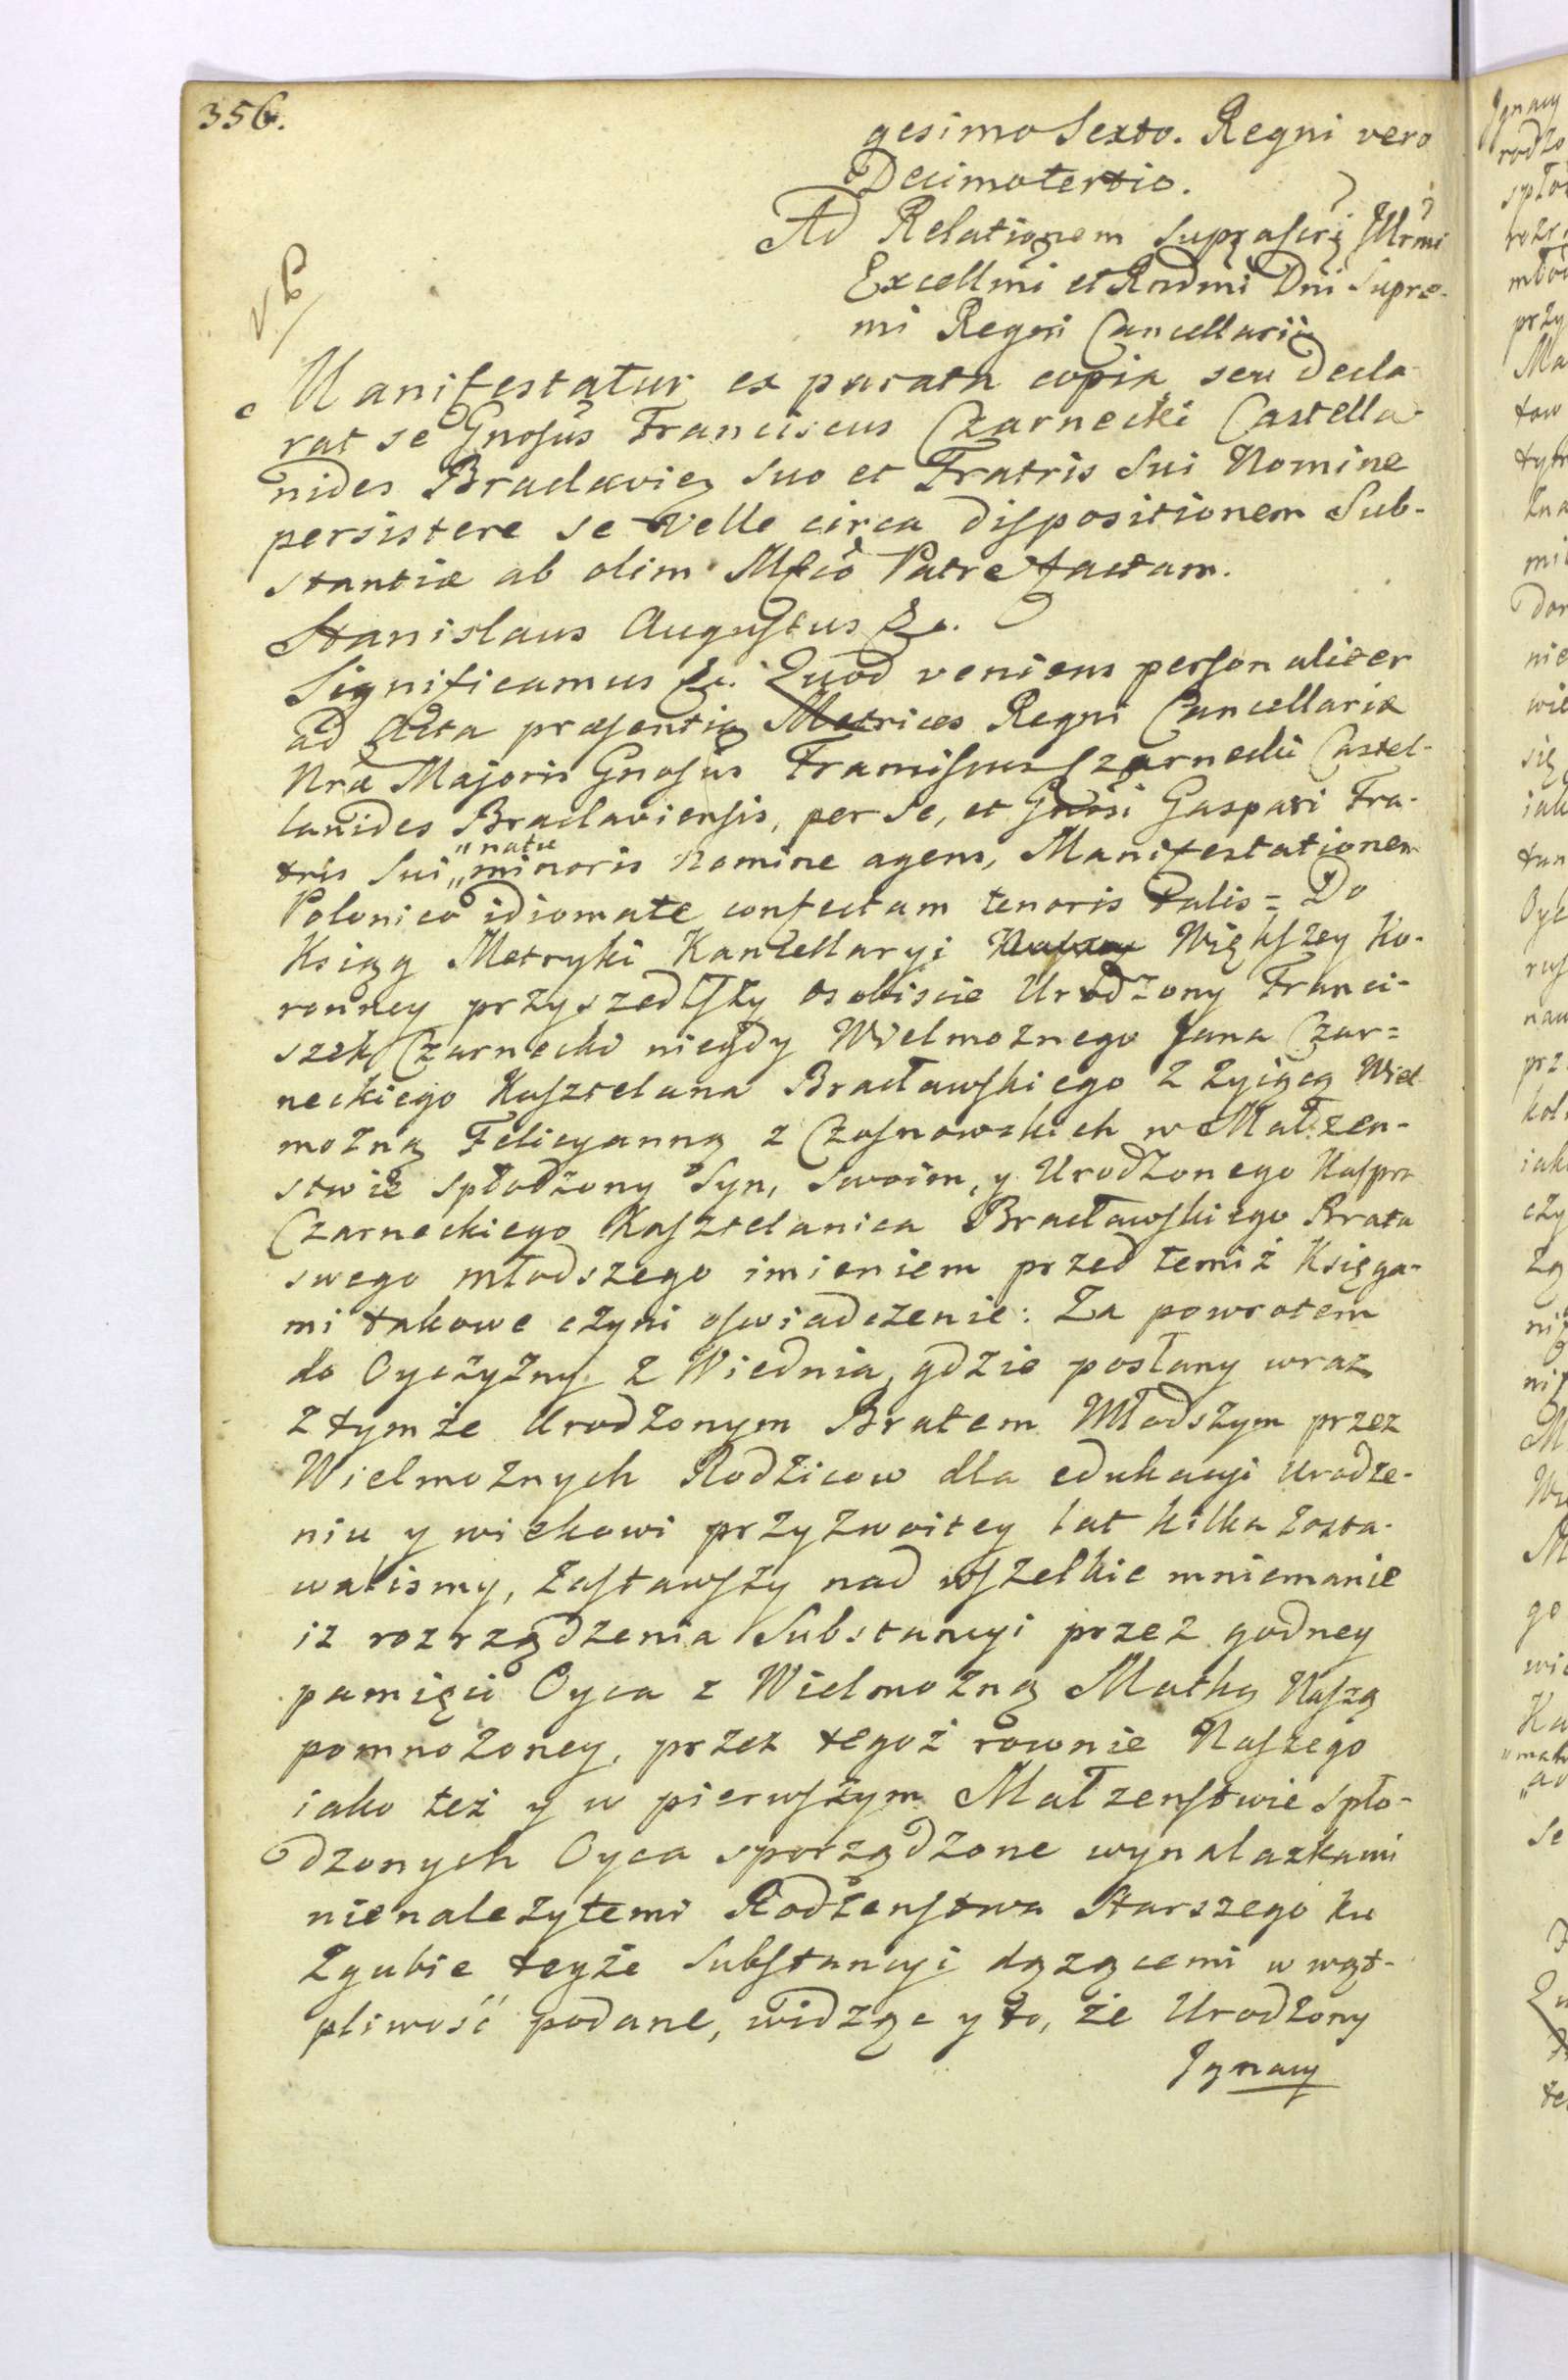 356.
gesimo Sexto. Regni vero
Decimotertio.
Ad Relationem suprascrī Illrmi
Excellmi et Rndmi Dni Supre-
mi Regni Cancellarii
Manifestatur ex parata copia seu decla-
rat se Gnosus Franciscus Czarnecki Castella-
nides Braclavien suo et Fratris Sui Nomine
persistere se Velle circa dispositionem Sub-
stantiæ ab olim Mfco Patre factam.
Stanislaus Augustus &c.
Significamus &c. Quod veniens personaliter
ad Acta præsentia Metrices Regni Cancellariæ
Nræ Majoris Gnosus Franciscus Czarnecki Castel-
lanides Braclaviensis, per se, et Gnosi Gaspari Fra-
"natu
tris Sui "minoris Nomine agens, Manifestationem
Polonico idiomate confectam tenoris talis = Do
Ksiąg Metryki Kancellaryi Większey Ko-
ronney przyszedłszy osobiscie Urodzony Franci-
szek Czarnecki niegdy Wielmożnego Jana Czar=
neckiego Kasztelana Bracławskiego z zyiącą Wiel
możną Felicyanną z Czosnowskich w Małzen-
stwie spłodzony Syn, swoim, y Urodzonego Kaspra
Czarneckiego Kasztelanica Bracławskiego Brata
swego młodszego imieniem przed temiż Księga-
mi takowe czyni oswiadczenie: Za powrotem
do Oyczyzny z Wiednia, gdzie posłany wraz
z tymże Urodzonym Bratem Młodszym przez
Wielmożnych Rodzicow dla edukacyi urodze-
niu y wiekowi przyzwoitey lat kilka zosta-
walismy, zastawszy nad wszelkie mniemanie
iż rozrządzenia Substancyi przez godney
pamięci Oyca z Wielmożną Matką Naszą
pomnożoney, przez tegoż rownie Naszego
iako też y w pierwszym Małzenstwie spło-
dzonych Oyca sporządzone wynalazkami
nienależytemi Rodzenstwa Starszego ku
zgubie teyże Substancyi dążącemi w wąt-
pliwość podane, widząc y to, że Urodzony
Ignacy